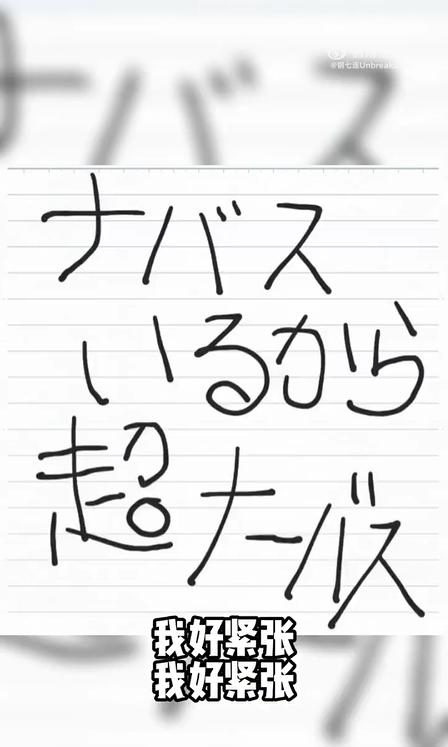 @钢七连Unbreak
ナバス
いるから
超ナーバス
我好紧张
我好紧张